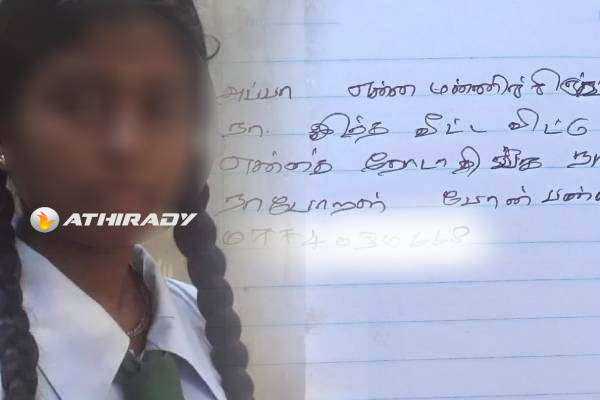 அப்பா என்ன மன்னிச்சிருங்க
நா. இந்த வீட்ட விட்டு
என்னத் தேடாதிங்க நா
நா போறன் போன் பண்ண
ATHIRADY